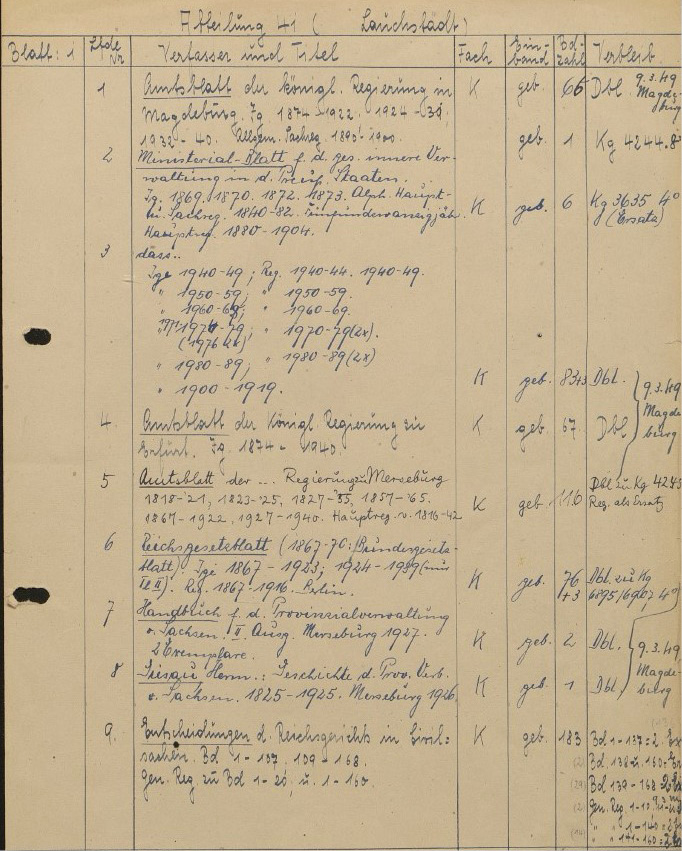 Abteilung 41 ( Lauchstädt)
Blatt: 1 Lfde Nr Verfasser und Titel Fach Ein-band Bd-zahl Verbleib
1 Amtsblatt der königl. Regierung in K geb. 66 Dbl. 9.3.49
Magdeburg. Jg 1874-1922. 1924-39; Magde-burg
1932-40. Allgem. Sachreg. 1890-1900. geb. 1 Kg 4244.8°
2 Ministerial-Blatt f. d. ges. innere Ver-
waltung in d. Preuß. Staaten.
Jg. 1869. 1870. 1872. 1873. Alph. Haupt-
u. Sachreg. 1840-82. Fünfundzwanzigjäh. K geb. 6 Kg 3635 4°
Hauptreg. 1880-1904. (Ersatz)
3 dass..
Jge 1940-49; Reg. 1940-44. 1940-49.
" 1950-59; " 1950-59.
" 1960-69; " 1960-69.
1974-79; " 1970-79(2x)
(1976 2x)
" 1980-89; " 1980-89(2x)
" 1900-1919. K geb. 83+3 Dbl. 9.3.49
4 Amtsblatt der Königl. Regierung zu K geb. 67 Dbl Magde
Erfurt. Jg. 1874-1940. burg
5 Amtsblatt der ... Regierung zu Merseburg Dbl zu Kg 4245
1818-'21, 1823-'25, 1827-'55, 1857-'65. K geb. 116 Reg. als Ersatz
1867-1922, 1927-1940. Hauptreg. v. 1816-42
6 Reichsgesetzblatt (1867-70: Bundesgesetz-
blatt). Jge 1867-1923; 1924-1939 (nur K geb. 76 Dbl. zu Kg
I u II). Reg. 1867-1916. Berlin. +3 6895/6907 4°
7 Handbuch f. d. Provinzialverwaltung
v. Sachsen. II. Ausg. Merseburg 1927. K geb. 2 Dbl. 9.3.49
2 Exemplare.
8 Giesau Herm.: Geschichte d. Prov. Verb. Magde-
v. Sachsen. 1825-1925. Merseburg 1926 K geb. 1 Dbl burg
9. Entscheidungen d. Reichsgerichts in Civil= K geb. 183 Bd 1-137: 2
sachen. Bd 1-137. 139-168. (2) Bd 138 u. 160
Gen. Reg. zu Bd 1-20, u. 1-160. (29) Bd 139-168
(2) Gen. Reg. 1-
" " 1-140
(14) " " 141-160